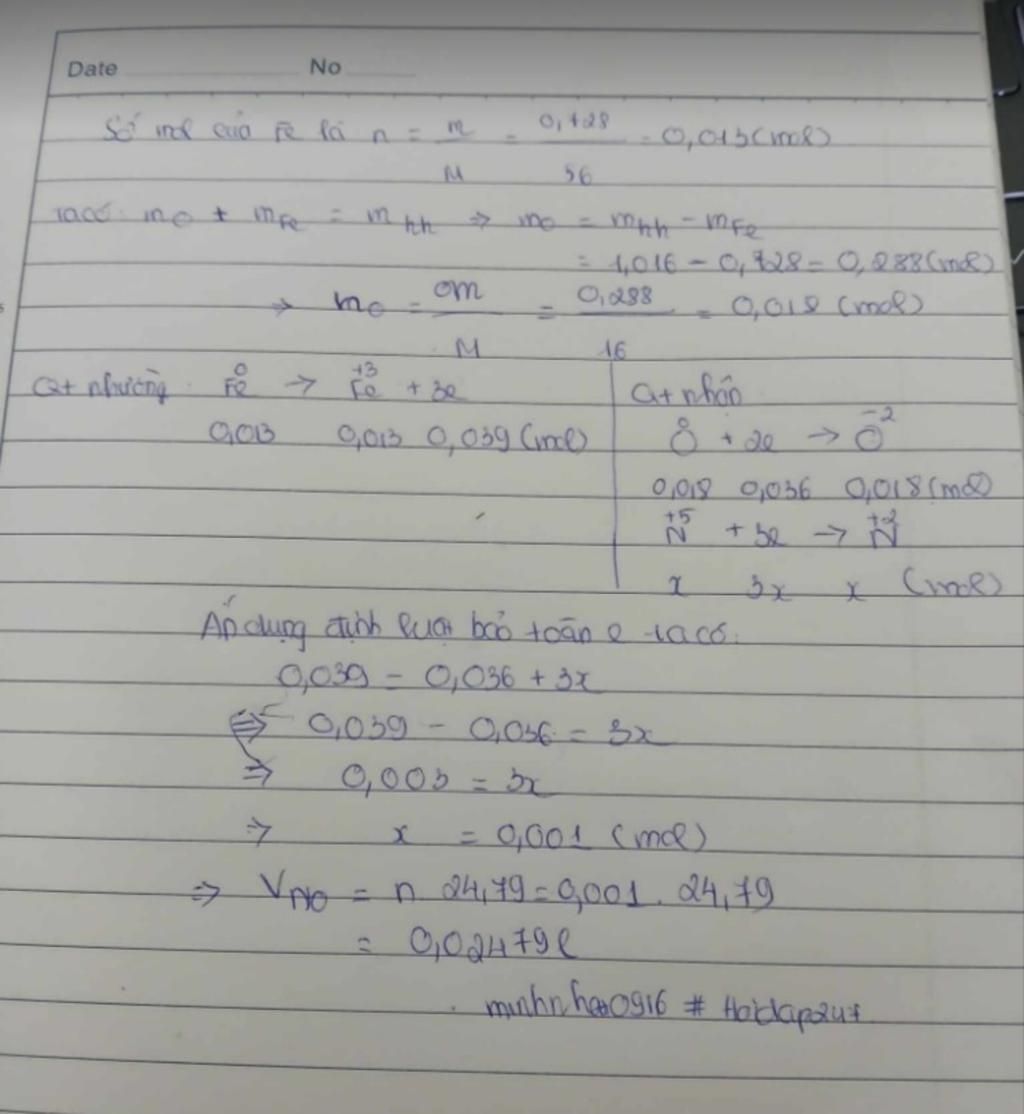 Date No
Số mol của Fe là n = m/M = 0,728/56 = 0,013 (mol)
Ta có: mO + mFe = mhh ⇒ mO = mhh - mFe
= 1,016 - 0,728 = 0,288 (mol)
⇒ mO = m/M = 0,288/16 = 0,018 (mol)
Qt nhường: Fe⁰ → Fe⁺³ + 3e
0,013 0,013 0,039 (mol)
Qt nhận
O⁰ + 2e → O⁻²
0,018 0,036 0,018 (mol)
N⁺⁵ + 3e → N⁺²
x 3x x (mol)
Áp dụng định luật bảo toàn e ta có:
0,039 = 0,036 + 3x
⇒ 0,039 - 0,036 = 3x
⇒ 0,003 = 3x
⇒ x = 0,001 (mol)
⇒ VNO = n 24,79 = 0,001 . 24,79
= 0,02479 l
minhnhat0916 # Hoidap247